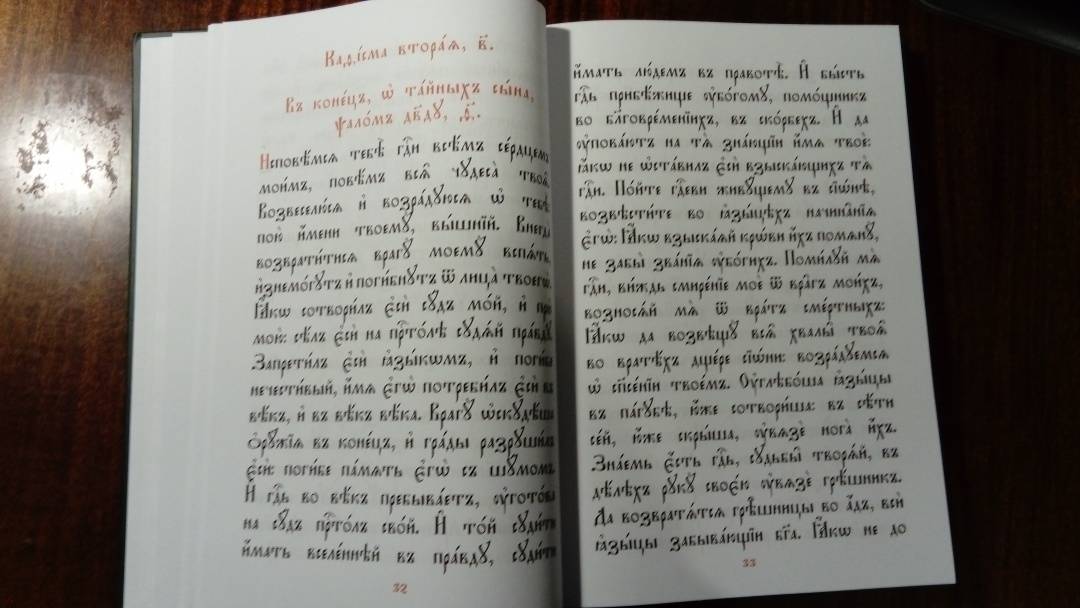 Каѳі́сма втора́я, в҃.
Въ коне́цъ, ѡ҆ та́йныхъ сы́на,
ѱало́мъ дв҃ду,
И҆сповѣ́мся тебѣ̀ гдⷭ҇и всѣ́мъ се́рдцемъ
мои́мъ, повѣ́мъ всѧ̑ чꙋдеса̀ твоѧ̑
Возвеселю́ся и҆ возра́дꙋюся ѡ҆ тебѣ̀
пою̀ и҆́мени твоемꙋ̀, вы́шнїй. Внегда̀
возврати́тися врагꙋ̀ моемꙋ̀ вспѧ́ть,
и҆знемо́гꙋтъ и҆ поги́бнꙋтъ ѿ лица̀ твоегѡ̀.
Ꙗ҆́кѡ сотвори́лъ є҆сѝ сꙋ́дъ мо́й, и҆ прю̀
мою̀: сѣ́лъ є҆сѝ на прⷭ҇то́лѣ сꙋдѧ́й пра́вдꙋ.
Запрети́лъ є҆сѝ ꙗ҆зы́кѡмъ, и҆ поги́бе
нечести́вый, и҆́мѧ є҆гѡ̀ потреби́лъ є҆сѝ въ
вѣ́къ, и҆ въ вѣ́къ вѣ́ка. Врагꙋ̀ ѡ҆скꙋдѣ́ша
ѻ҆рꙋ̑жїѧ въ коне́цъ, и҆ гра́ды разрꙋши́лъ
є҆сѝ: поги́бе па́мѧть є҆гѡ̀ съ шꙋ́момъ.
И҆ гдⷭ҇ь во вѣ́къ пребыва́етъ, ᲂу҆гото́ва
на сꙋ́дъ прⷭ҇то́лъ сво́й. И҆ то́й сꙋди́ти
и҆́мать вселе́ннѣй въ пра́вдꙋ, сꙋди́ти
32
и҆́мать лю́демъ въ правотѣ̀. И҆ бы́сть
гдⷭ҇ь прибѣ́жище ᲂу҆бо́гомꙋ, помо́щникъ
во бл҃говре́менїихъ, въ ско́рбехъ. И҆ да
ᲂу҆пова́ютъ на тѧ̀ зна́ющїи и҆́мѧ твоѐ:
ꙗ҆́кѡ не ѡ҆ста́вилъ є҆сѝ взыска́ющихъ тѧ̀
гдⷭ҇и. По́йте гдⷭ҇еви живꙋ́щемꙋ въ сїѡ́нѣ,
возвѣсти́те во ꙗ҆зы́цѣхъ начина̑нїѧ
є҆гѡ̀: Ꙗ҆́кѡ взыска́ѧй крѡ́ви и҆́хъ помѧнꙋ̀,
не забы̀ зва́нїѧ ᲂу҆бо́гихъ. Поми́лꙋй мѧ̀
гдⷭ҇и, ви́ждь смире́нїе моѐ ѿ вра̑гъ мои́хъ,
возносѧ́й мѧ̀ ѿ вра́тъ сме́ртныхъ:
Ꙗ҆́кѡ да возвѣщꙋ̀ всѧ̑ хвалы̑ твоѧ̑
во вратѣ́хъ дще́ре сїѡ́ни: возра́дꙋемся
ѡ҆ сп҃се́нїи твое́мъ. Оу҆глѣбо́ша ꙗ҆зы́цы
въ па́гꙋбѣ, ю҆́же сотвори́ша: въ сѣ́ти
се́й, ю҆́же скры́ша, ᲂу҆вѧзѐ нога̀ и҆́хъ.
Зна́емь є҆́сть гдⷭ҇ь, сꙋдьбы̑ творѧ́й, въ
дѣ́лѣхъ рꙋкꙋ̀ своє́ю ᲂу҆вѧзѐ грѣ́шникъ.
Да возвратѧ́тся грѣ́шницы во а҆́дъ, всѝ
ꙗ҆зы́цы забыва́ющїи бг҃а. Ꙗ҆́кѡ не до
33